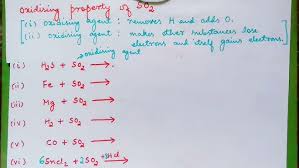 Oxidising property of SO2
(i) oxidising agent : removes H and adds O.
(ii) oxidising agent : makes other substances lose
electrons and itself gains electrons.
oxidising agent
(i) H2S + SO2 →
(ii) Fe + SO2 →
(iii) Mg + SO2 →
(iv) H2 + SO2 →
(v) CO + SO2 →
(vi) 6SnCl2 + 2SO2 + 8HCl →